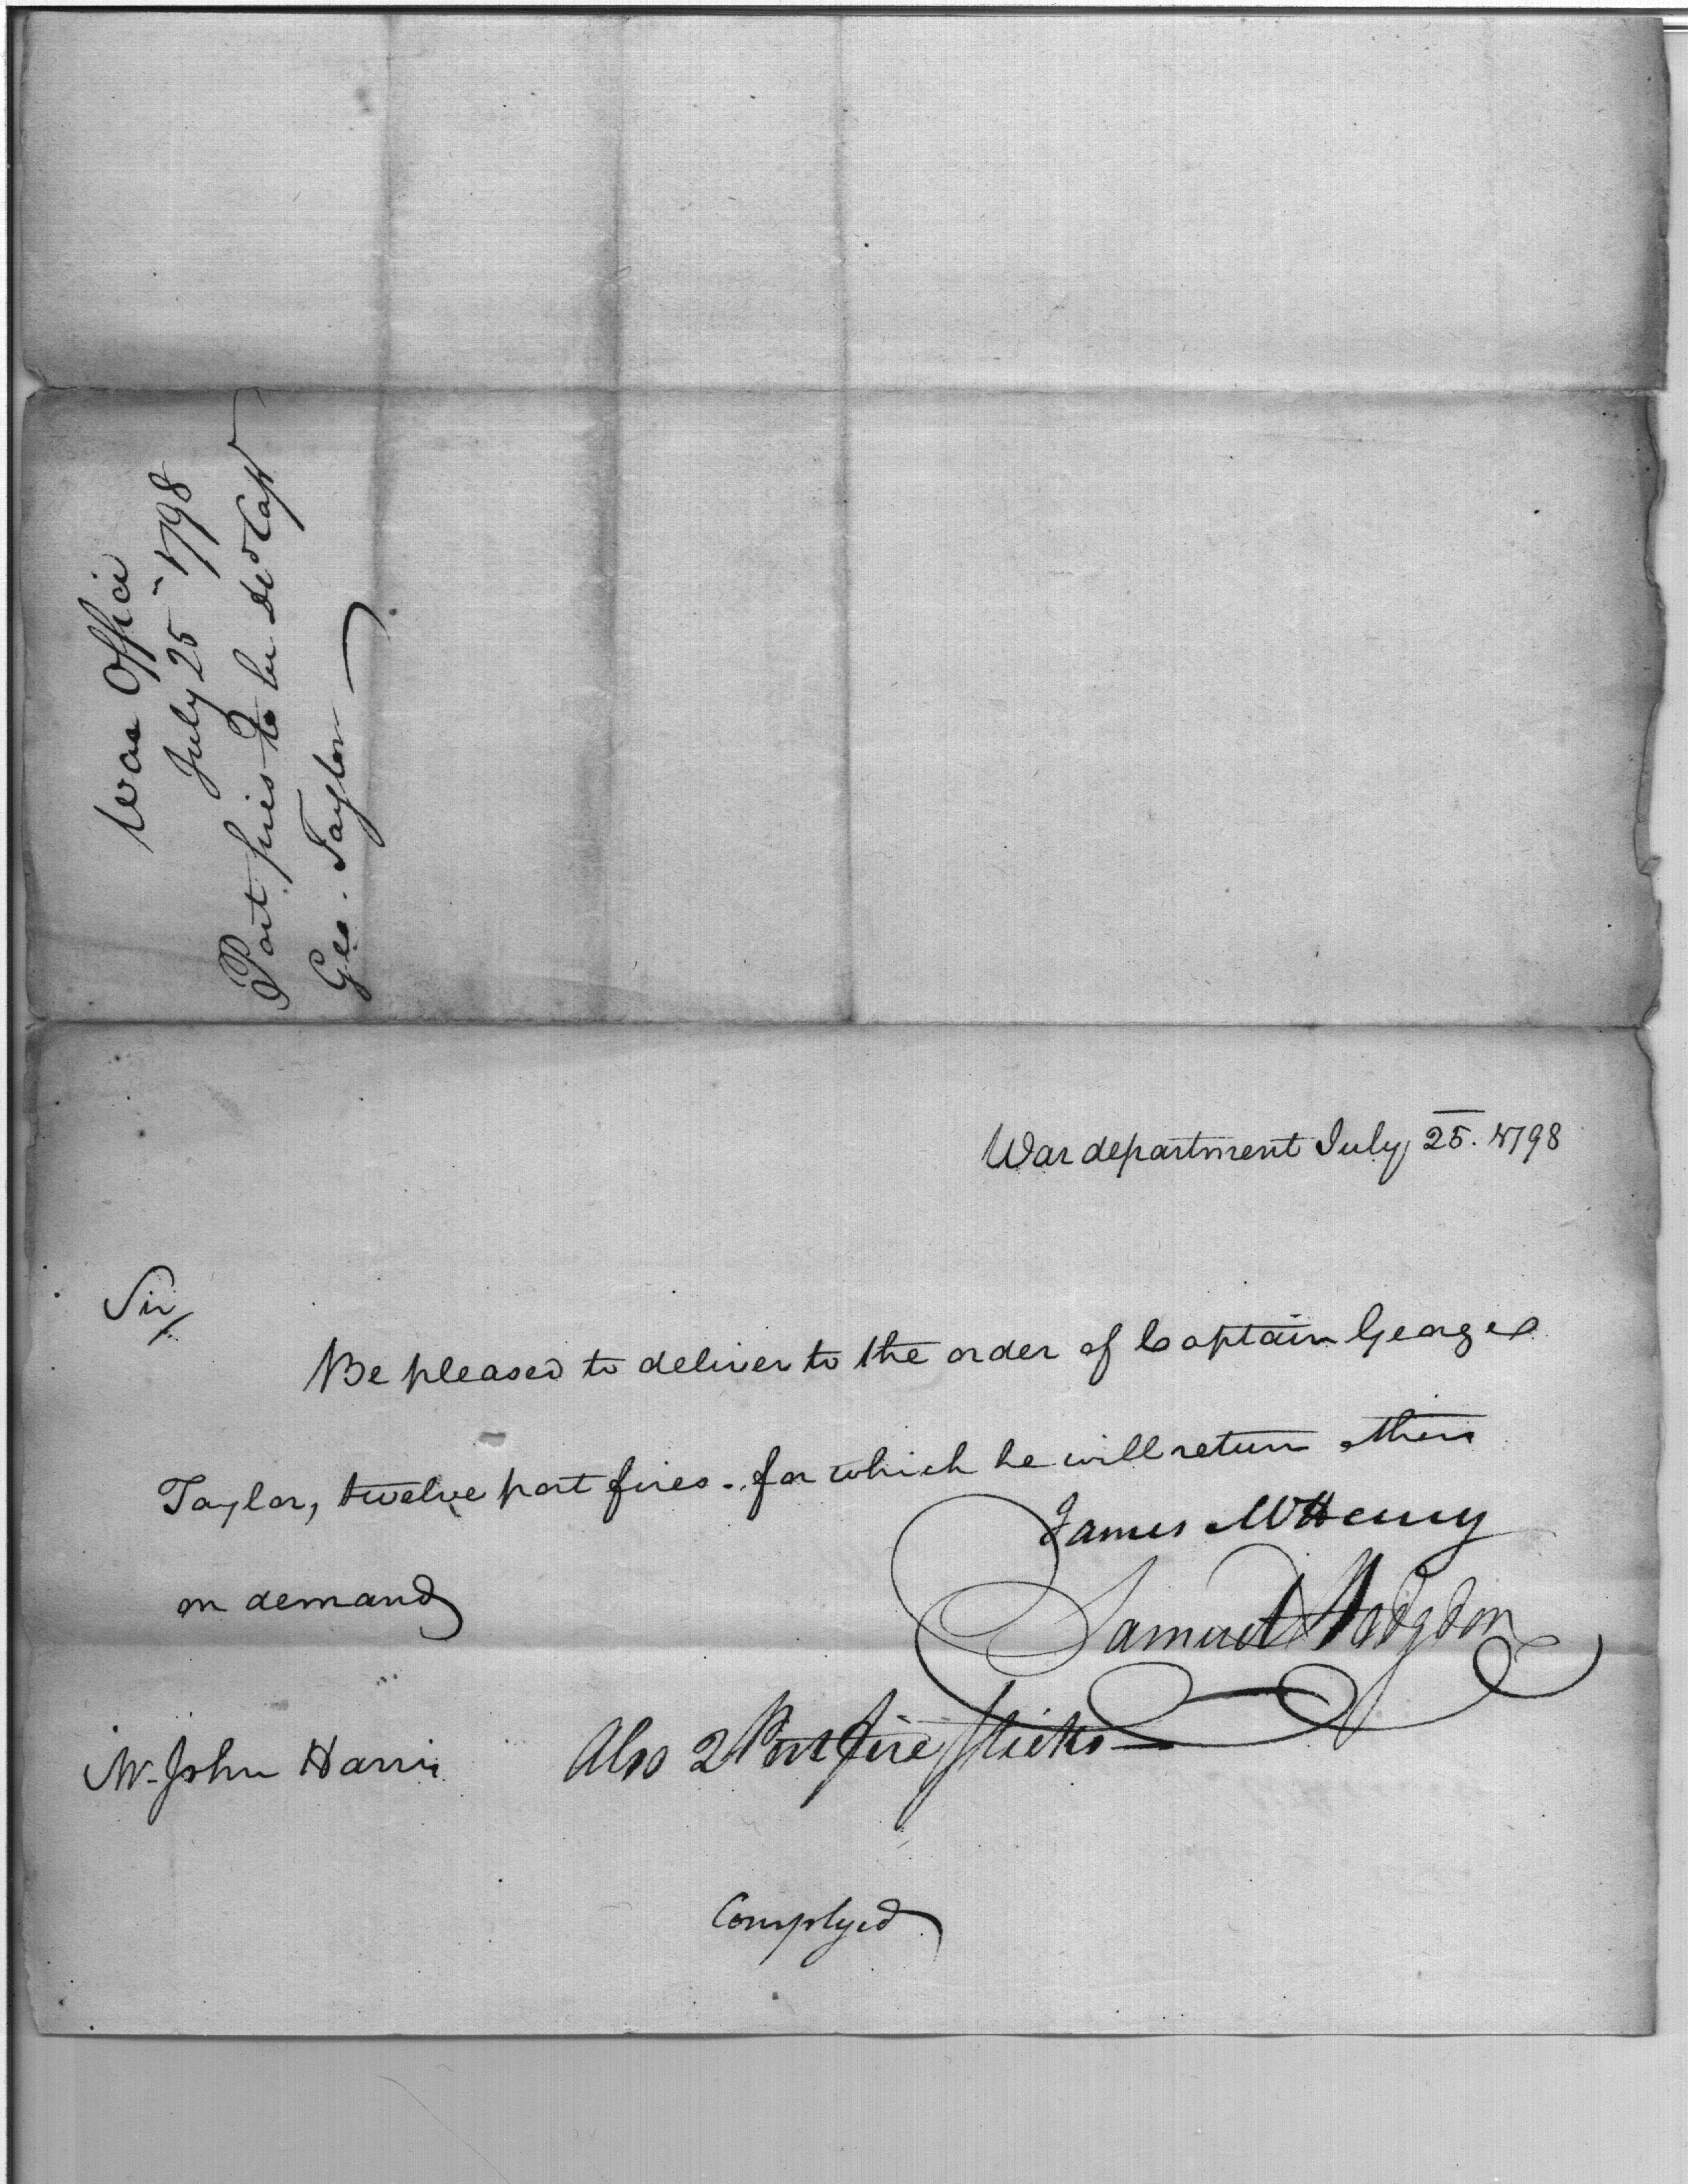 War Office
July 25 - 1798
Port fires to be dd Capt
Geo. Taylor
War department July 25. 1798
Sir,
Be pleased to deliver to the order of Captain George
Taylor, twelve port fires - for which he will return
James McHenry
on demand
Samuel Hodgdon
Mr John Harris
Also 2 Port fire Sticks
Complyed